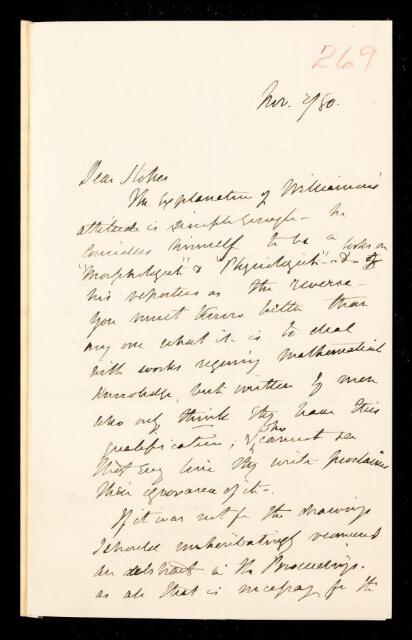 269
Nov. 2/80.
Dear Stokes
The explanation of Williamson's
attitude is simple enough - he
considers himself to be a
"Morphologist" & "Physiologist" - & looks on
his reporters as the reverse -
You must know better than
any one what it is to deal
with works requiring mathematical
knowledge, but written by men
who only think they have this
qualification, & who cannot see
that every line they write proclaims
their ignorance of it -.
If it was not for the drawings
I should unhesitatingly recommend
an abstract in the Proceedings.
as all that is necessary for the